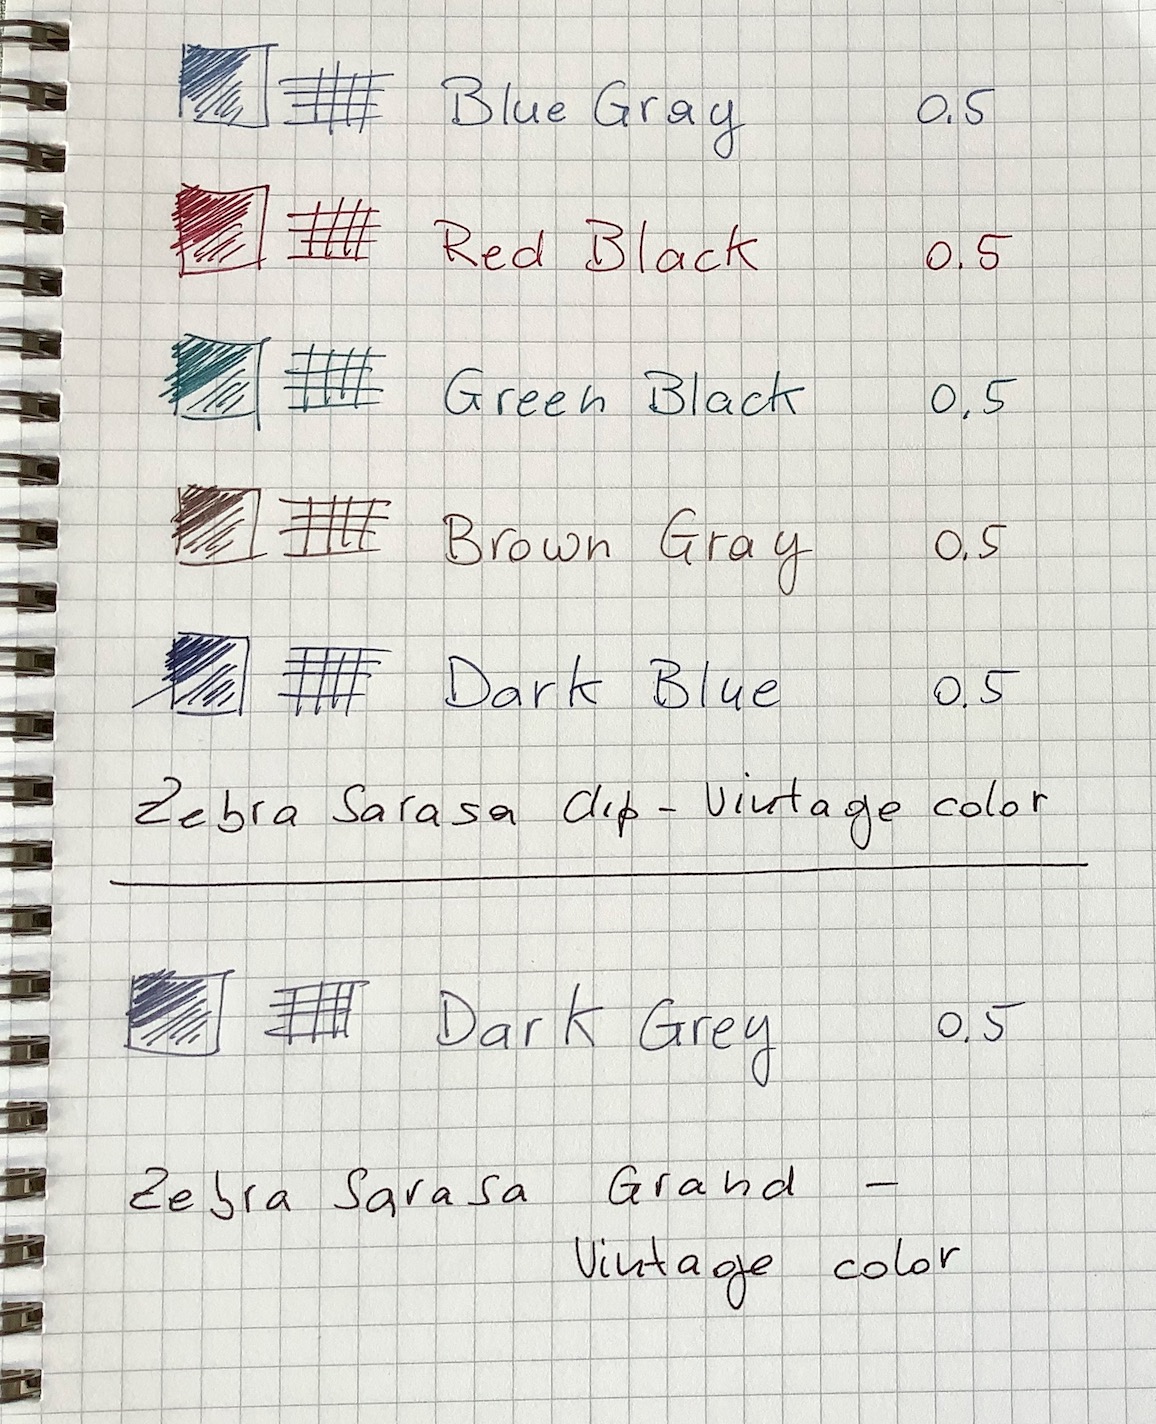 Blue Gray 0.5
Red Black 0.5
Green Black 0.5
Brown Gray 0.5
Dark Blue 0.5
Zebra Sarasa clip - Vintage color
Dark Grey 0.5
Zebra Sarasa Grand -
Vintage color